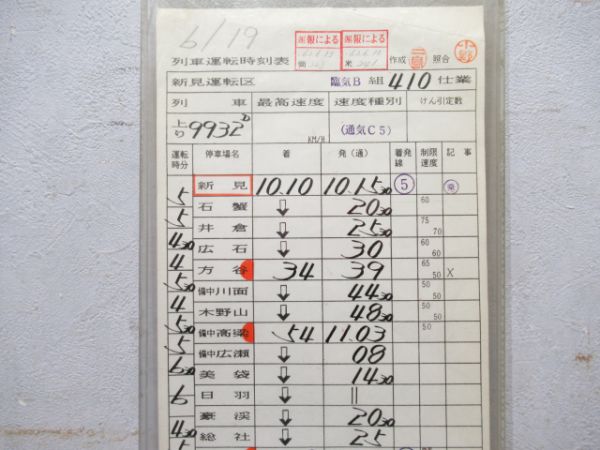 6/19
運報による 運報による
列車運転時刻表 作成 照合
新見運転区 臨気B 組 410 仕業
列 車 最高速度 速度種別 けん引定数
上り 9932D KM/H (通気C5)
運転時分 停車場名 着 発(通) 着発線 制限速度 記事
新 見 10.10 10.15 30 ⑤
5
石 蟹 ⇩ 20 30 60
5
井 倉 ⇩ 25 30 75 70
4 30
広 石 ⇩ 30 60 60
4
方 谷 34 39 65 50 X
5 30
備中川面 ⇩ 44 30 50 50
4
木野山 ⇩ 48 30 50 50
5 30
備中高梁 54 11.03 50
5
備中広瀬 ⇩ 08
6 30
美 袋 ⇩ 14 30
6
日 羽 ⇩ ||
豪 渓 ⇩ 20 30
4 30
総 社 ⇩ 25
5